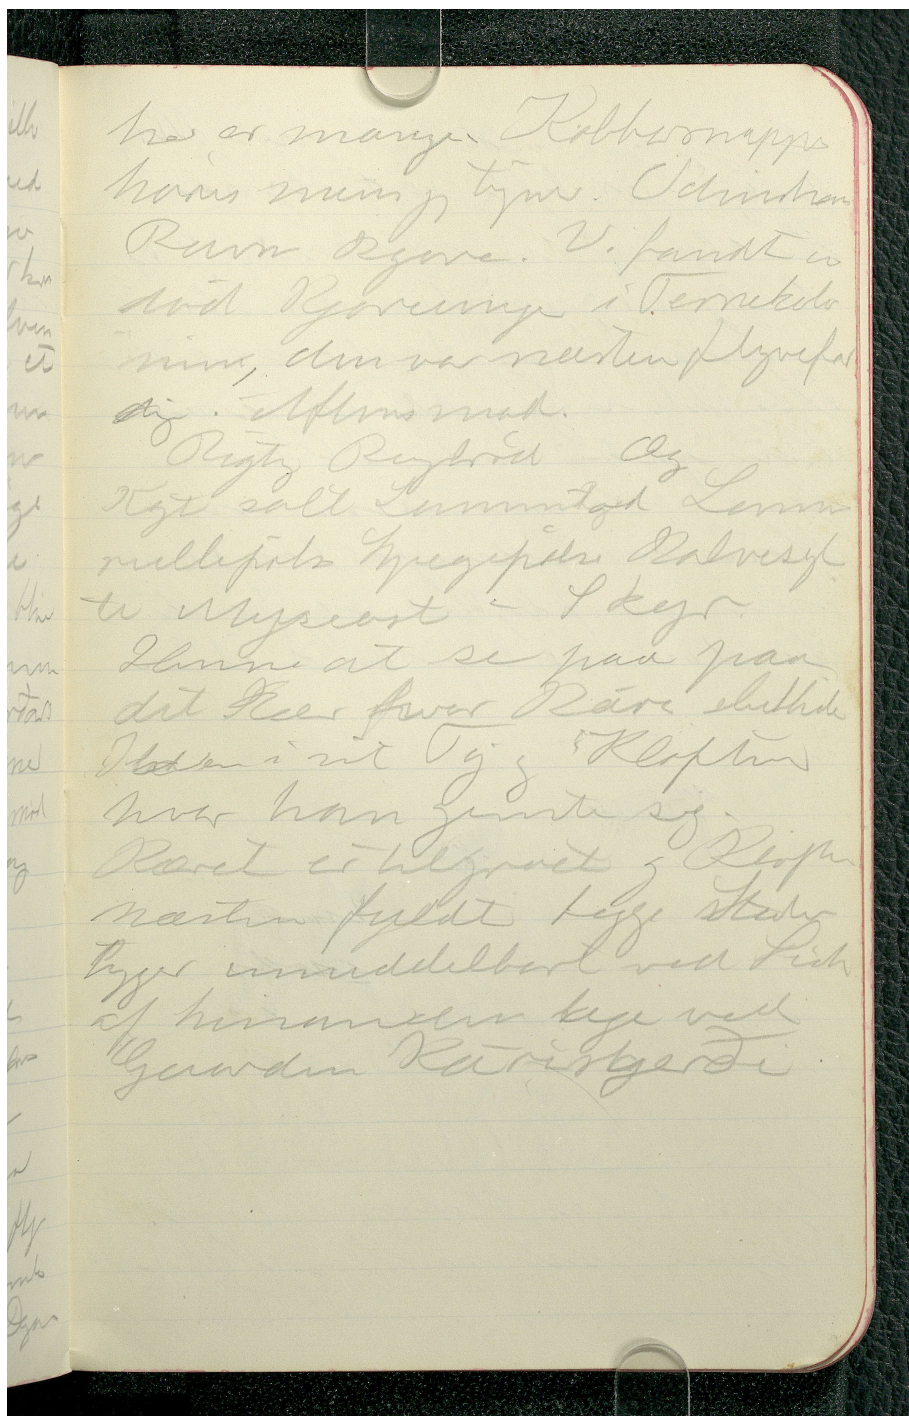 her er mange Kobbersnepper
Ravn Skjære. Vi fandt en
død i Ternekolo
nine, den var næsten flyvefær
dig. Aftensmad.
Rigtig Rugbrød Og
Kogt salt Lammekød Lamme
rullepølse Spegepølse Kalvesyl
te Myseost - Skyr
Henne at se paa paa
det Kær hvor Kári slukkede
Ilden i sit Tøj og Kløften
hvor han gemte sig.
Kæret er tilgroet og Kløften
næsten fyldt begge Steder
ligger umiddelbart ved Side
af hinanden lige ved
Gaarden Káragerði